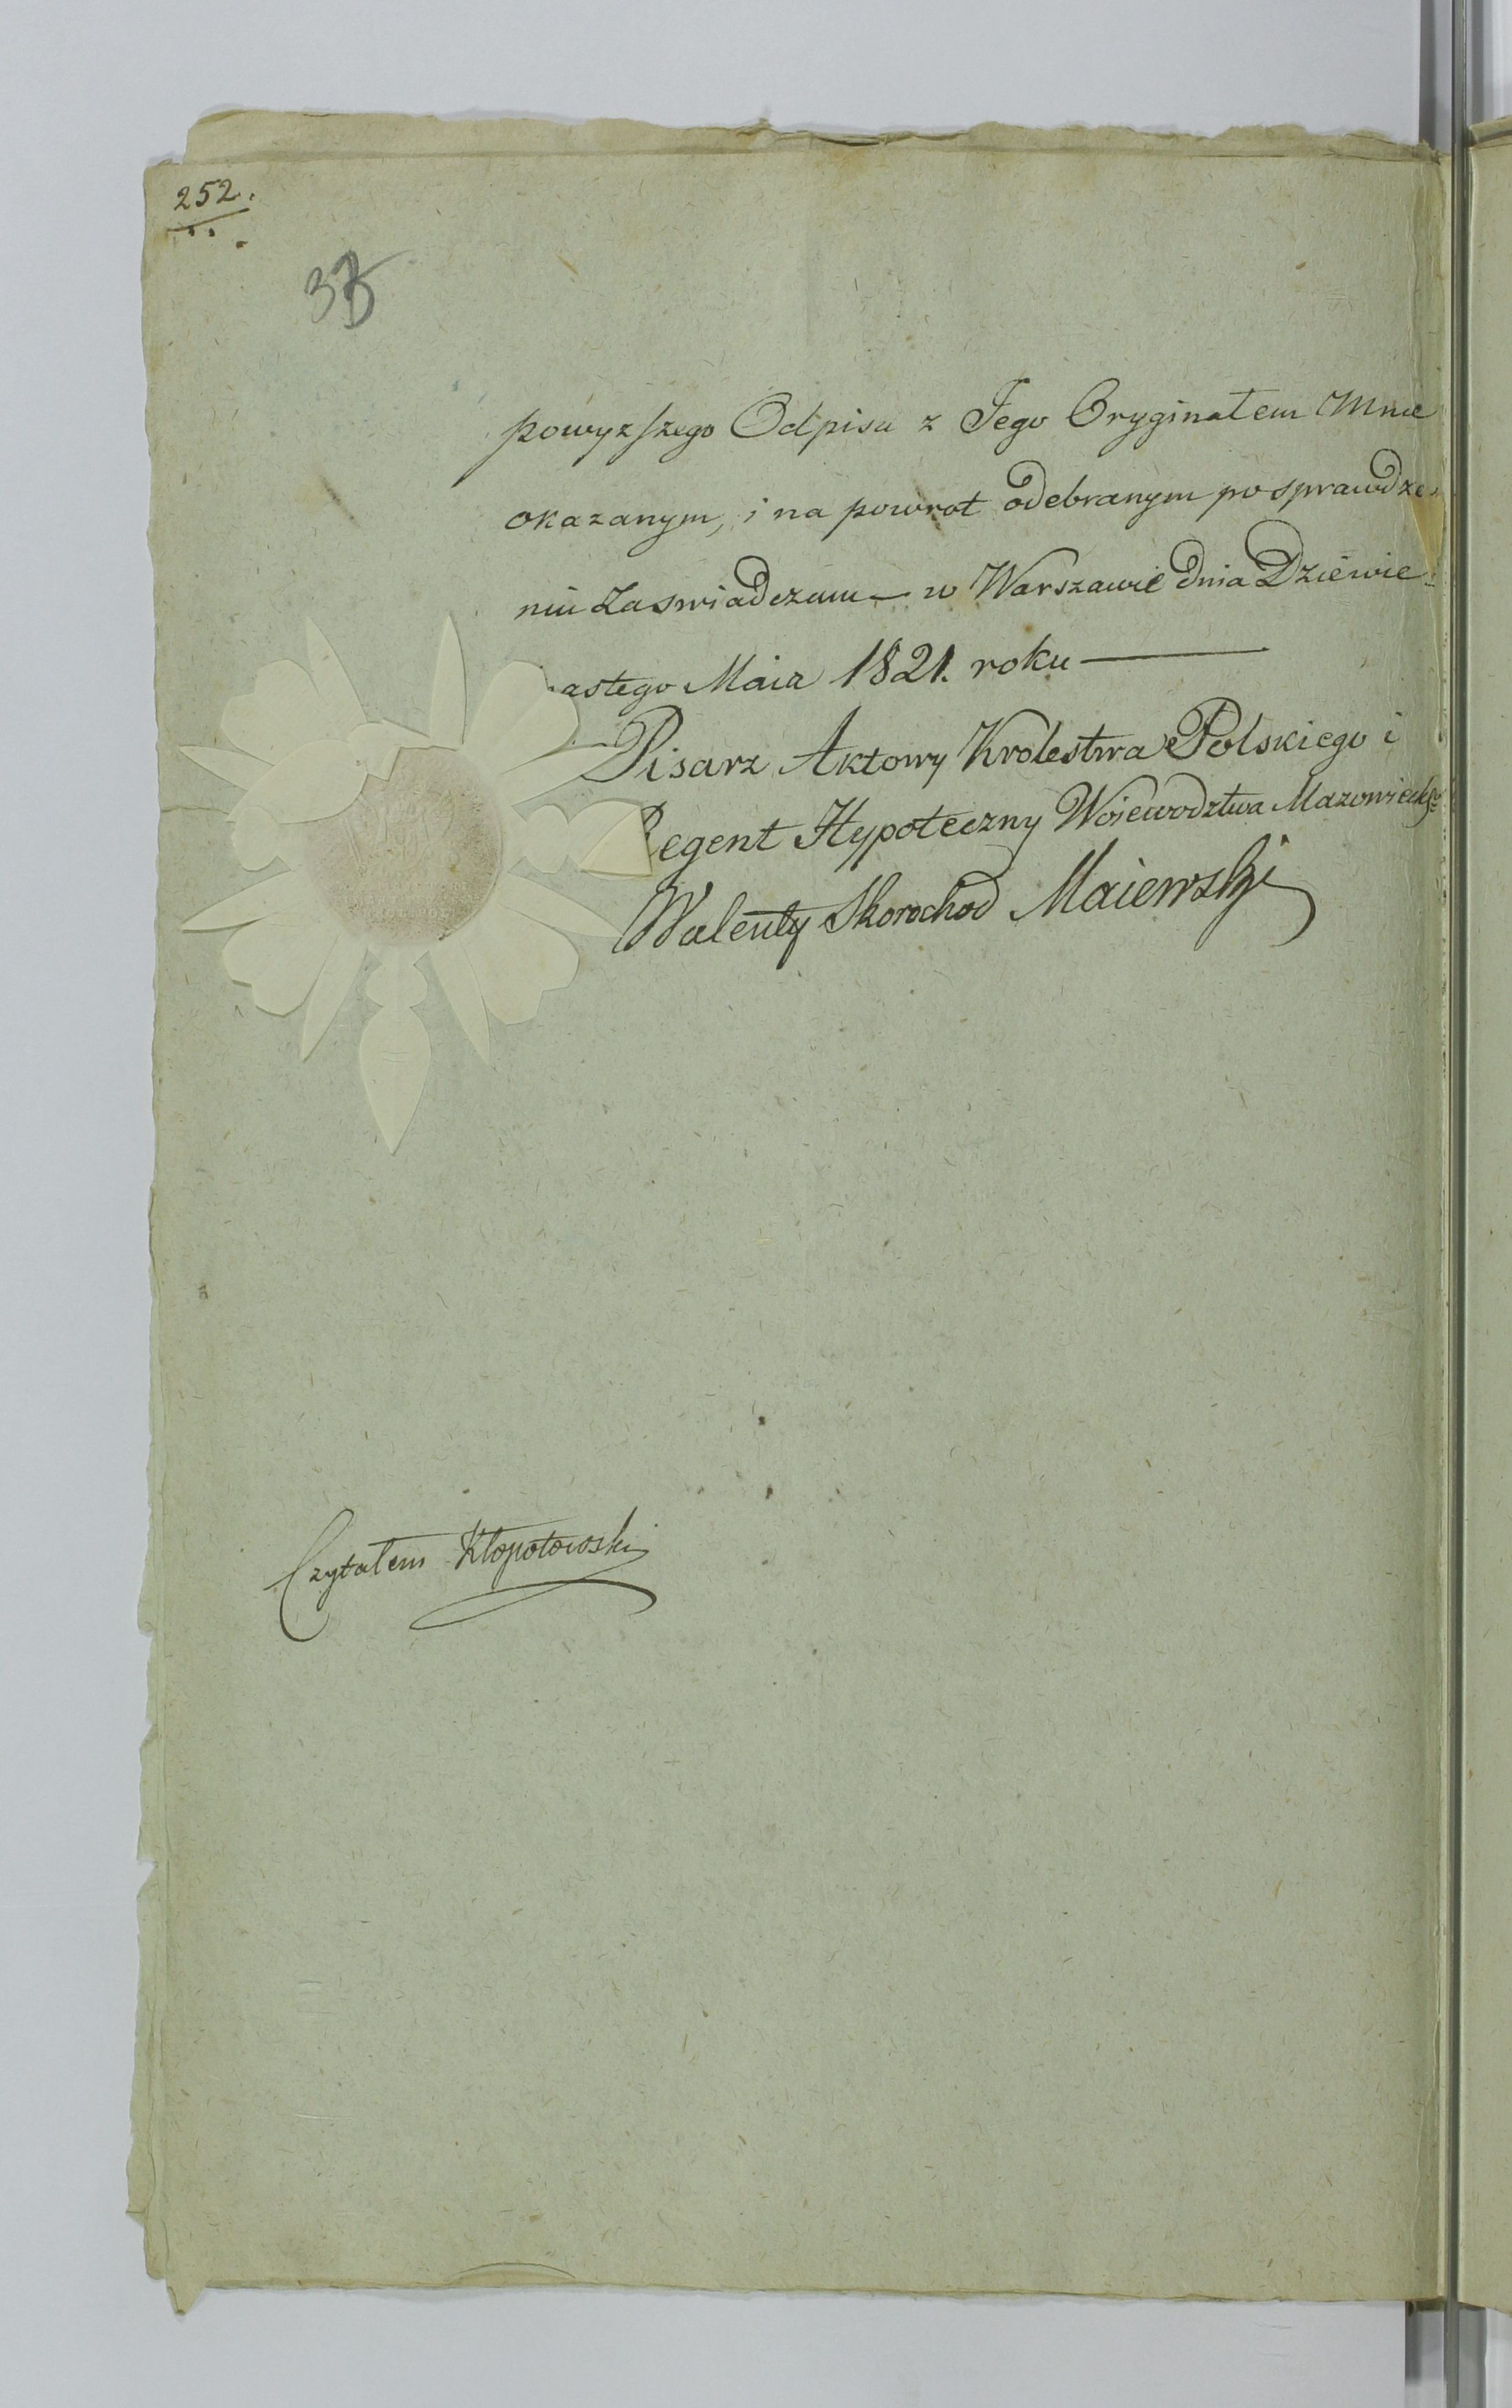 252.
powyzszego Odpisu z Jego Oryginałem Mnie
okazanym, i na powrot odebranym po sprawdze-
niu Zaswiadczam — w Warszawie dnia Dziewie-
astego Maia 1821. roku —
Pisarz Aktowy Krolestwa Polskiego i
Regent Hypoteczny Woiewodztwa Mazowieckgo
Walenty Skorochod Maiewski
Czytałem Kłopotowski